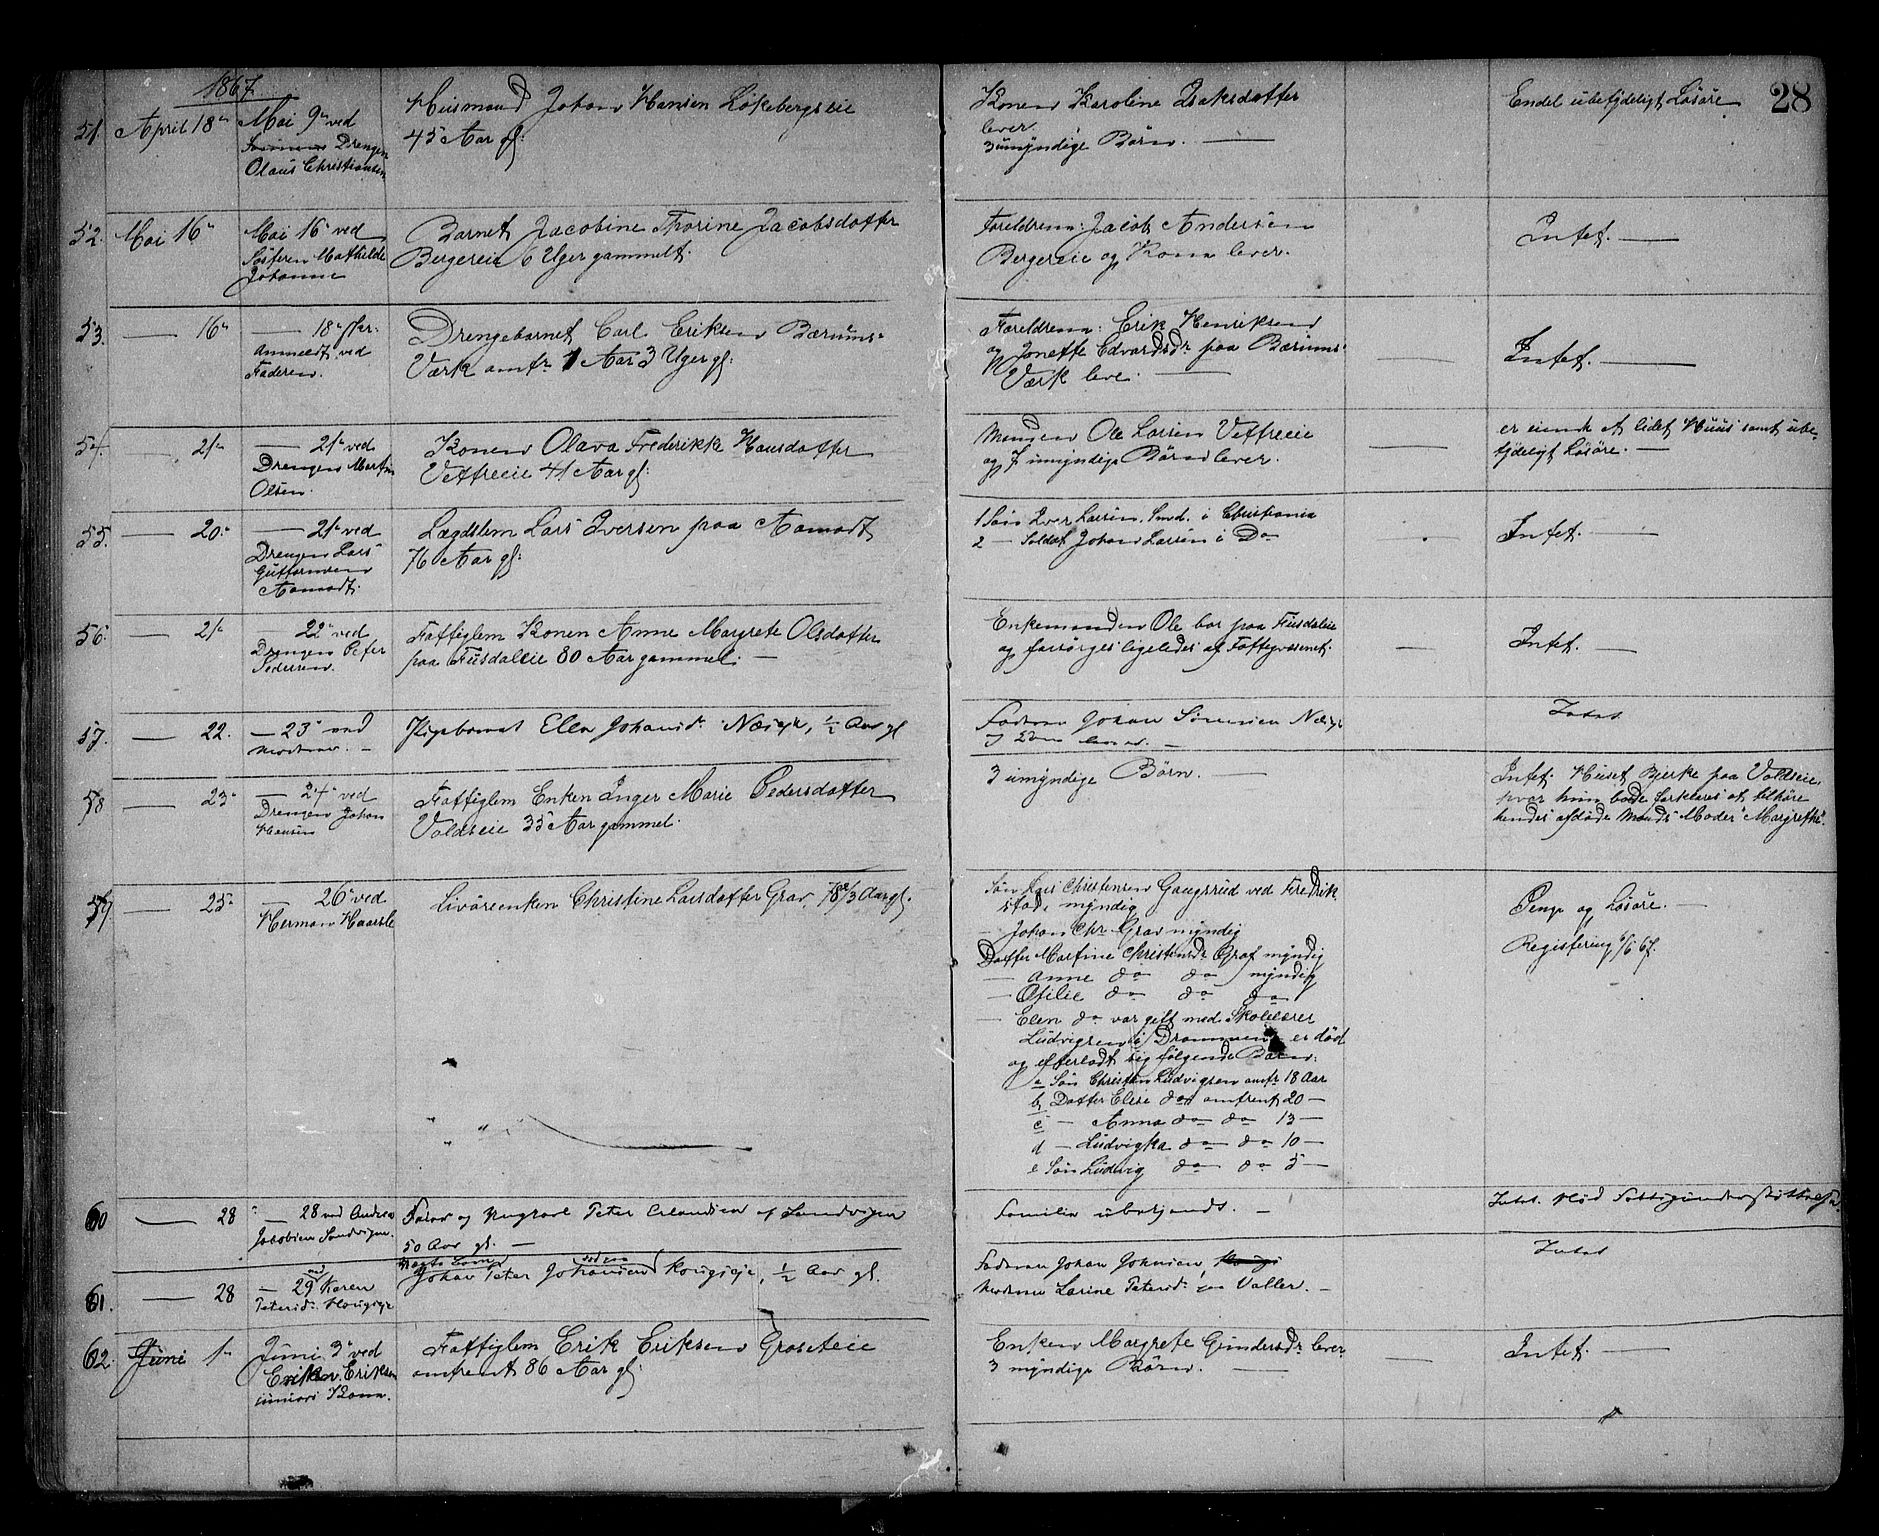 28
1867
51. April 18de Mai 9de ved Drengen Olaus Christiansen
Husmand Johan Hansen Løkebergseie
45 Aar gl:
Konen Karoline Isaksdatter
lever
3 umyndige Børn. —
Endel ubetydeligt Løsøre
52. Mai 16de
Mai 16de ved
Søsteren Mathilde
Johanne
Barnet Jacobine Thorine Jacobsdatter
Bergereie 6 Uger gammelt.
Foreldrene: Jacob Andersen
Bergereie og Kone lever.
Intet. —
53. — 16de
— 18de
Anmeldt ved
Faderen.
Drengebarnet Carl Eriksen Bærums-
Værk omtr 1 Aar 3 Uger gl:
Foreldrene: Erik Henriksen
og Jonette Edvardsdr paa Bærums
Værk leve. —
— Intet. —
54. — 21de
— 21de ved
Drengen Martin
Olsen.
Konen Olava Frederikke Hansdatter
Vettreeie 41 Aar gl:
Manden Ole Larsen Vettreeie
og 7 umyndige Børn lever.
—
er eiende et lidet Huus samt ube-
tydeligt Løsøre. —
55. — 20de
— 21de ved
Drengen Lars
Guttormsen
Aamodt.
Lægdslem Lars Iversen paa Aamodt
76 Aar gl:
1 Søn Iver Larsen, Smd. i Christiania
2 — Soldat Johan Larsen i Do
Intet. —
56. — 21de
— 22de ved
Drengen Peter
Pedersen.
Fattiglem Konen Anne Margrete Olsdatter
paa Fusdaleie 80 Aar gammel. —
Enkemanden Ole bor paa Fusdaleie
og forsørges ligeledes af Fattigvæsenet.
— Intet. —
57. — 22.
— 23de ved
Moderen. —
Pigebarnet Ella Johansdr. Næseie, ½ Aar gl
Faderen Johan Simensen
Intet
58 — 23de
— 24de ved
Drengen Johan
Hansen
Fattiglem Enken Inger Marie Pedersdatter
Voldseie 35 Aar gammel.
3 umyndige Børn. —
Intet. Huset Bjerke paa Voldseie,
hvor hun boede forklares at tilhøre
hendes afdøde Mands Moder Margrethe.
59 — 25de
— 26de ved
Herman Haarsle
Livøreenken Christine Larsdatter Grav, 78 2/3 Aar gl.
Søn Lars Christensen Gaugsrud ved Fredrik
stad, myndig
— Johan Chr. Grav myndig
Datter Martine Christensdr Graf myndig
— Anne do do myndig
— Otilie do do do
— Elen do var gift med Skolelærer
Ludvigsen i Drammen, er død
og efterladt sig følgende Børn:
a Søn Christian Ludvigsen omtr 18 Aar
b Datter Elise do omtrent 20 —
c — Anna do do 13 —
d — Ludvigka do do 10 —
e Søn Ludvig do do 5 —
Penge og Løsøre. —
Registering 6/6 67.
60 — 28
— 28 ved Andreas
Jacobsen Sandvigen.
Farver og Peter Erlandsen af Sandvigen
50 Aar gl. —
Familie ubekjendt. —
Intet. Nød Fattigunderstøttelse.
61. — 28
— 29 ved Karen
Petersdr. Haugseje
Johan Peter Johansen Haugseje, ½ Aar gl.
Faderen Johan Johnsen,
Moderen Larine Petersdr paa Valler. —
Intet
62. Juni 1de
Juni 3de ved
Erik Eriksen
juniors Kone.
Fattiglem Erik Eriksen Grøseteie
omtrent 86 Aar gl:
Enken Margrete Gundersdr lever
3 myndige Børn. —
— Intet. —